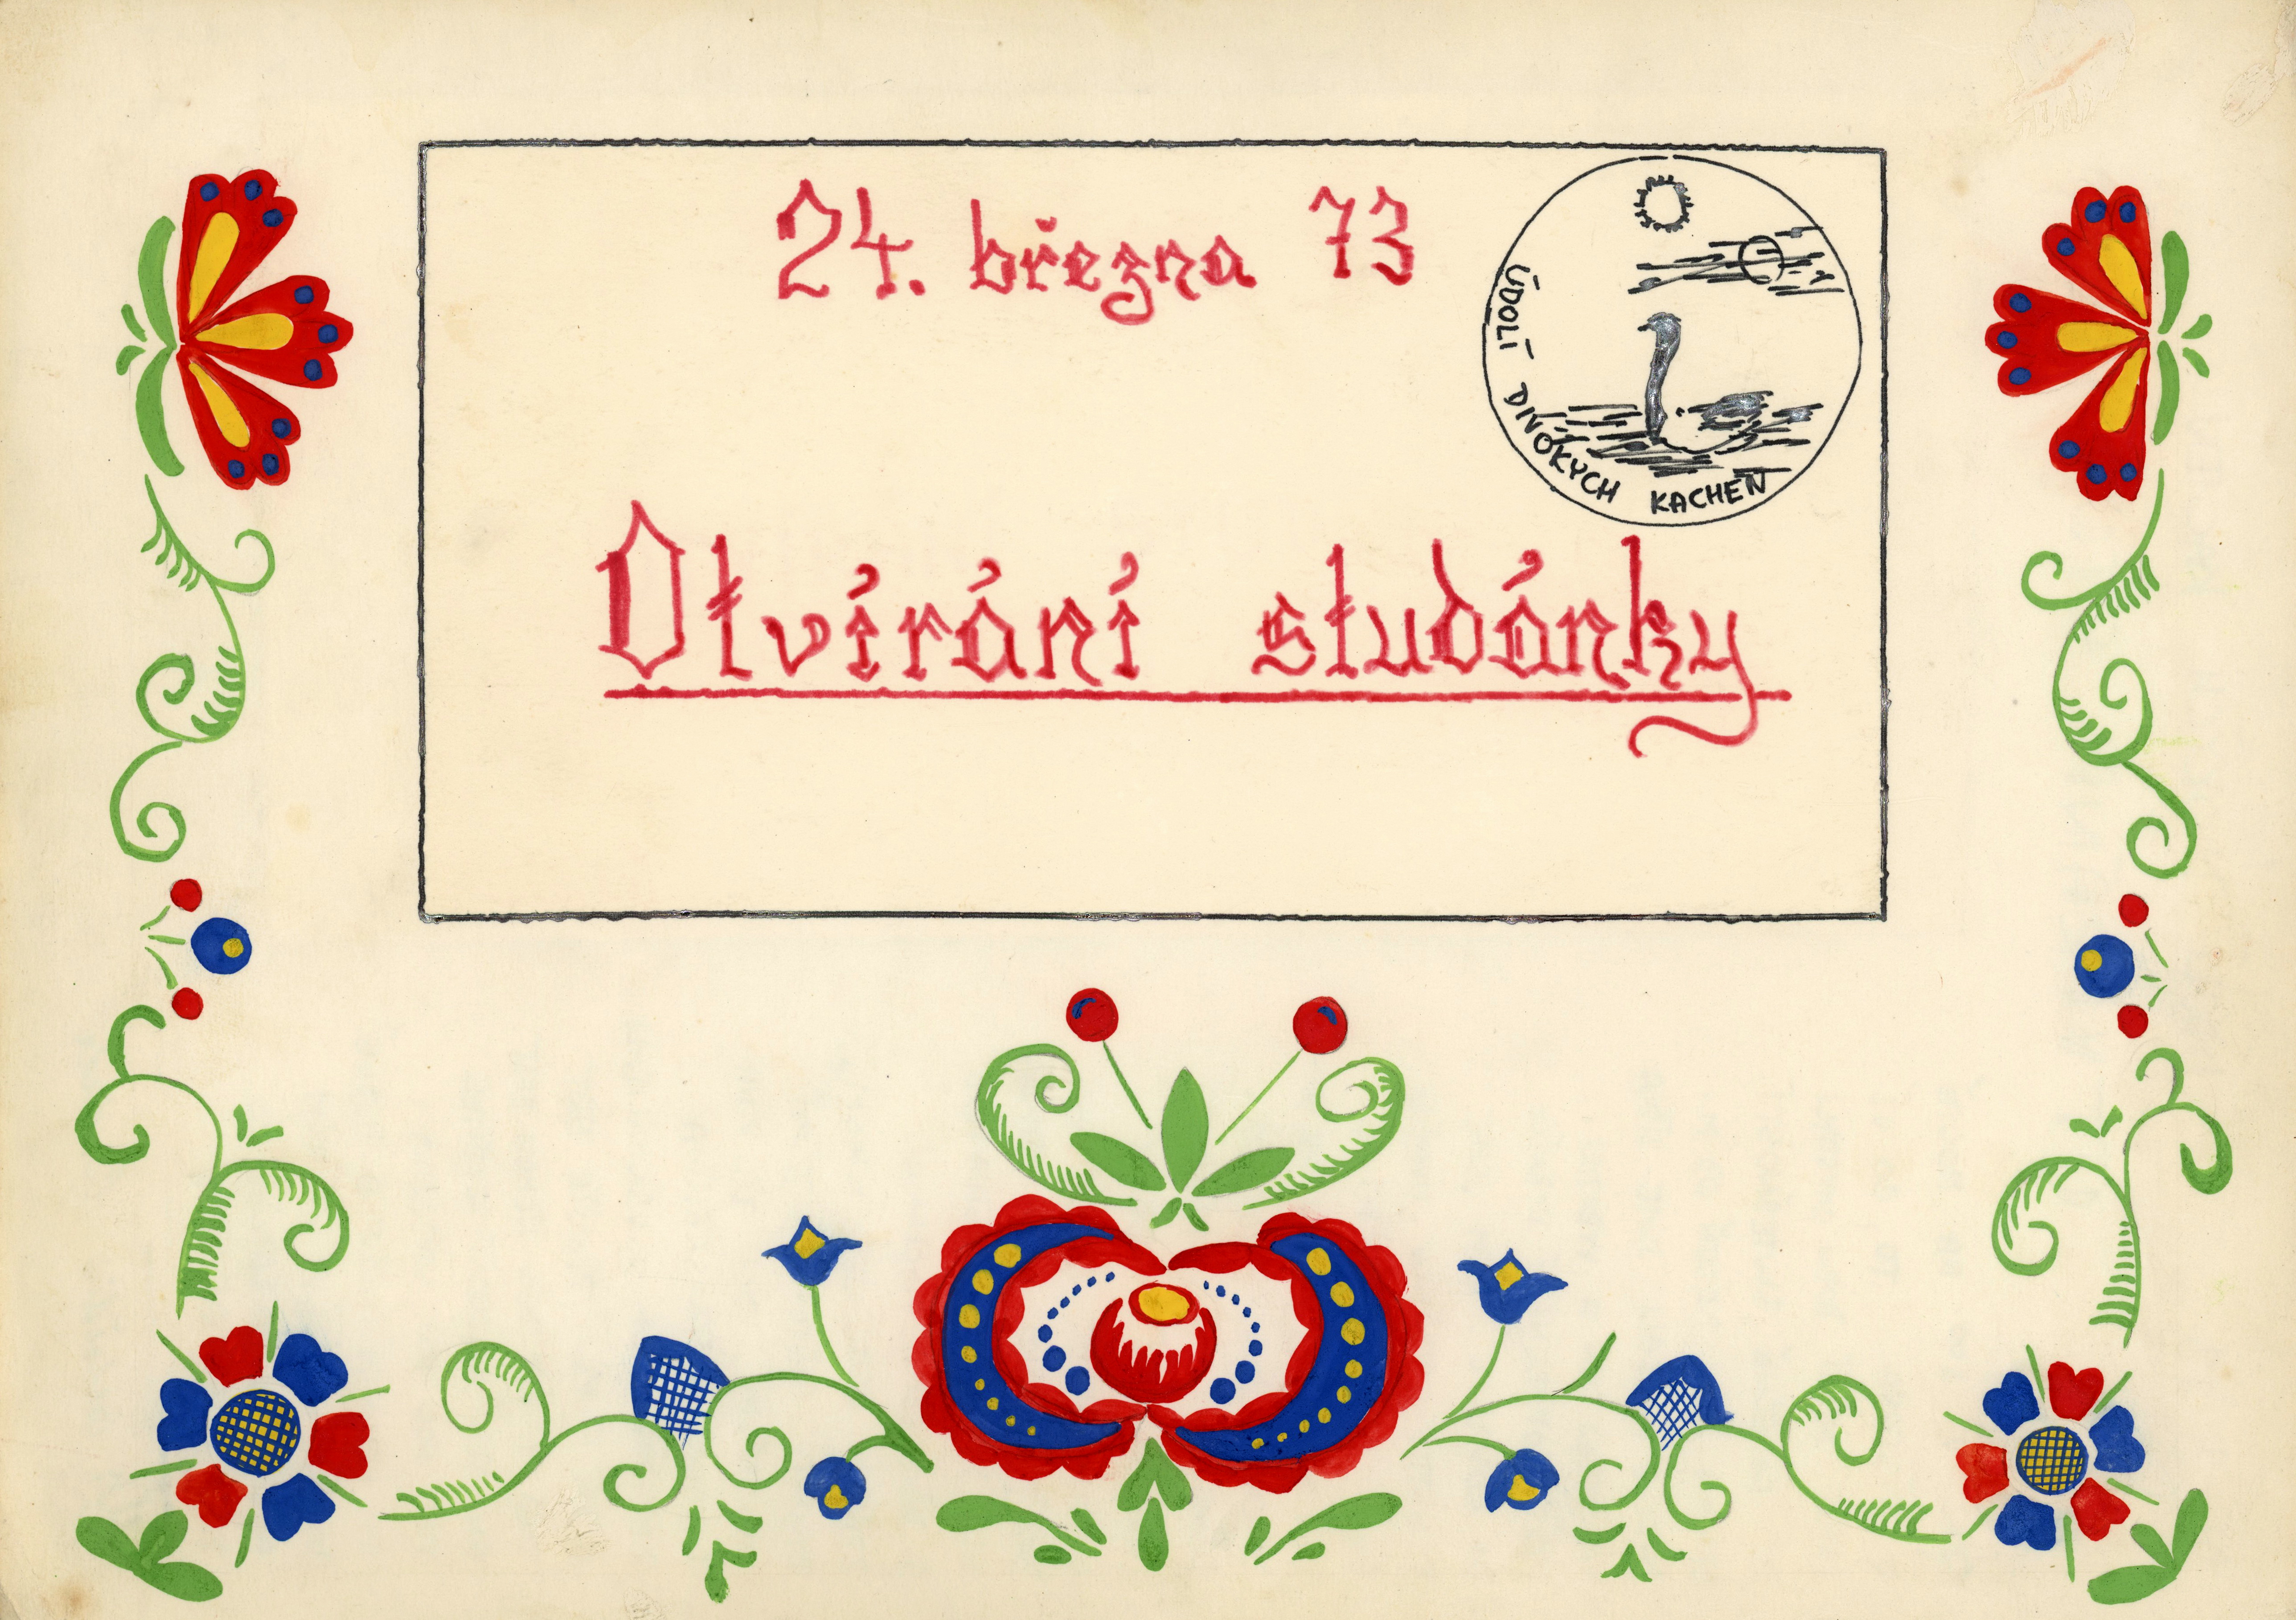 24. března 73
ÚDOLÍ DIVOKÝCH KACHEN
Otvírání studánky